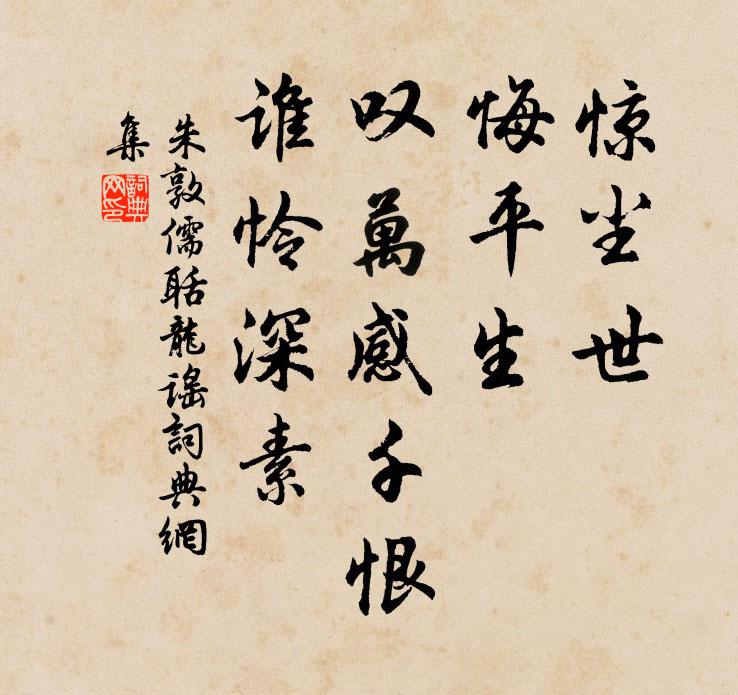 惊尘世
悔平生
叹萬感千恨
谁怜深素
朱敦儒聒龍谣詞典網
集
詞典
网印